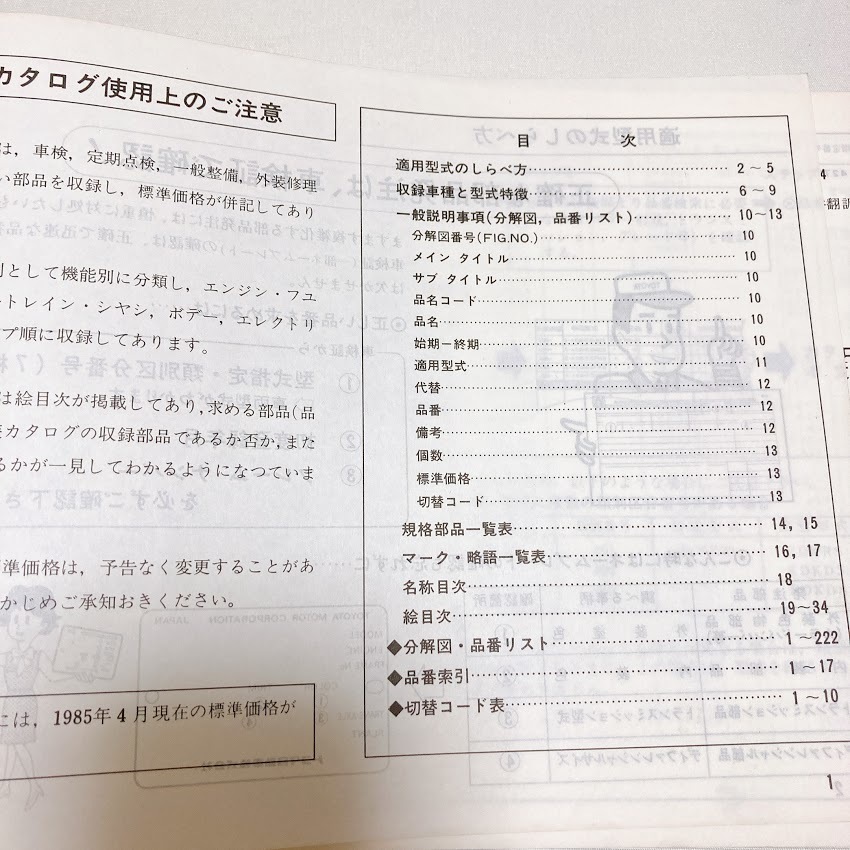 カタログ使用上のご注意
は，車検，定期点検，一般整備，外装修理
い部品を収録し，標準価格が併記してあり
別として機能別に分類し，エンジン・フユ
ートレイン・シヤシ，ボデー，エレクトリ
プ順に収録してあります。
は絵目次が掲載してあり，求める部品(品
カタログの収録部品であるか否か，また
るかが一見してわかるようになつていま
準価格は，予告なく変更することがあ
かじめご承知おきください。
には，1985年4月現在の標準価格が
目　次
適用型式のしらべ方 2～5
収録車種と型式特徴 6～9
一般説明事項(分解図，品番リスト) 10～13
分解図番号(FIG.NO.) 10
メイン タイトル 10
サブ タイトル 10
品名コード 10
品名 10
始期－終期 10
適用型式 11
代替 12
品番 12
備考 12
個数 13
標準価格 13
切替コード 13
規格部品一覧表 14，15
マーク・略語一覧表 16，17
名称目次 18
絵目次 19～34
◆分解図・品番リスト 1～222
◆品番索引 1～17
◆切替コード表 1～10
1